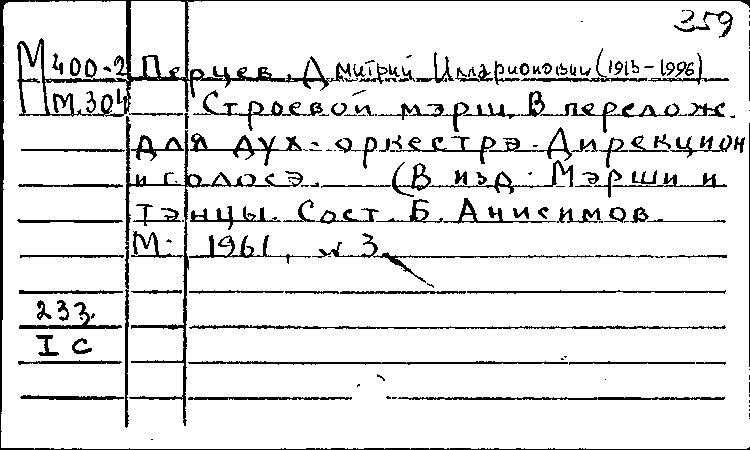 359
М 400-2 Перцев, Дмитрий Илларионович (1913-1996)
М.304 Строевой марш. В перелож.
для дух. оркестра. Дирекцион
и голоса. (В изд: Марши и
танцы. Сост. Б. Анисимов.
М. 1961, № 3.
233.
I с